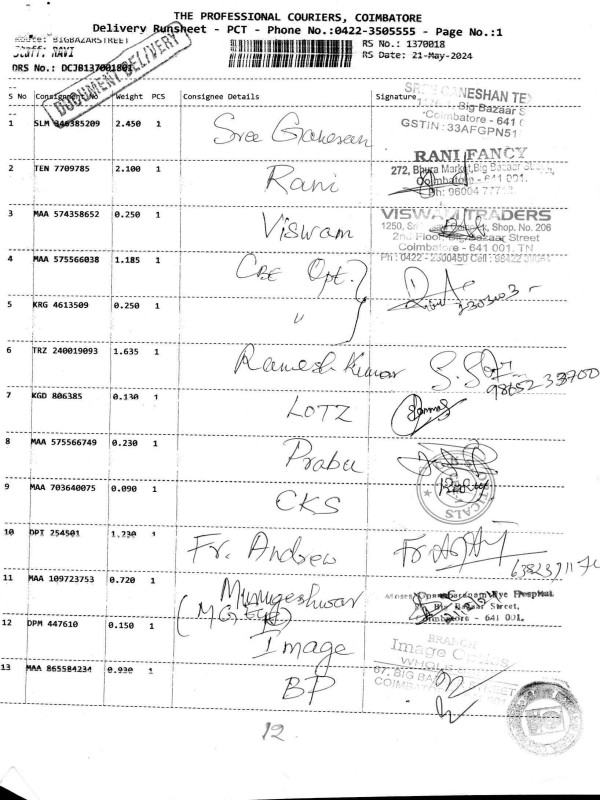 THE PROFESSIONAL COURIERS, COIMBATORE
Delivery Runsheet - PCT - Phone No.:0422-3505555 - Page No.:1
Route: BIGBAZARSTREET
Staff: RAVI
RS No.: 1370018
RS Date: 21-May-2024
DRS No.: DCJB137001801
DOCUMENT DELIVERY
S No Consignment No Weight PCS Consignee Details Signature
1 SLM 346385209 2.450 1 Sree Ganesan
Big Bazaar S
Coimbatore - 641
GSTIN: 33AFGPN51
2 TEN 7709785 2.100 1 Rani
RANI FANCY
272, Bhura Market, Big Bazaar Street,
Coimbatore - 641 001.
3 MAA 574358652 0.250 1 Viswam
VISWAM TRADERS
Shop. No. 206
2nd Floor, Big Bazaar Street
Coimbatore - 641 001. TN
4 MAA 575566038 1.185 1 CBE Opt.
5 KRG 4613509 0.250 1 "
6 TRZ 240019093 1.635 1 Ramesh Kumar
7 KGD 806385 0.130 1 LOTZ
8 MAA 575566749 0.230 1 Prabu
9 MAA 703640075 0.090 1 CKS
10 DPT 254501 1.230 1 Fr. Andrew
11 MAA 109723753 0.720 1 Murugeshwar
(M.G. Eye)
Eye Hospital
Big Bazaar Street,
Coimbatore - 641 001.
12 DPM 447610 0.150 1 Image
BRANCH
Image Optics
13 MAA 865584234 0.930 1 BP
67, BIG BAZAAR STREET
12